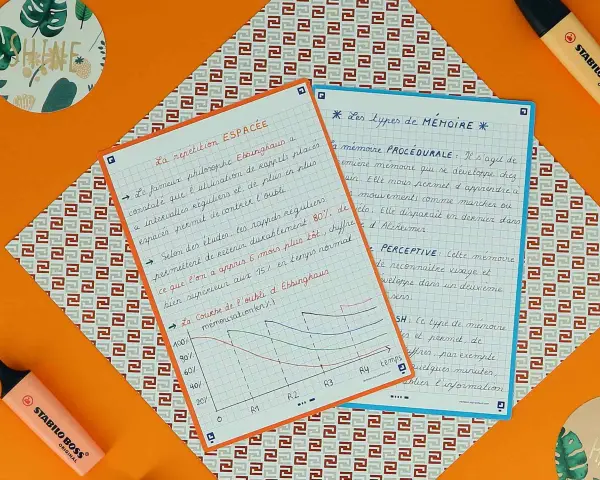 SHINE
STABILO BOSS
La répétition ESPACÉE
→ Le fameux philosophe Ebbinghaus a
constaté que l'utilisation de rappels placés
à intervalles réguliers et de plus en plus
espacés permet de contrer l'oubli.
→ Selon des études, les rappels réguliers
permettent de retenir durablement 80% de
ce que l'on a appris 6 mois plus tôt, chiffre
bien supérieur aux 15% en temps normal
→ La Courbe de l'oubli d'Ebbinghaus
mémorisation (en %)
100%
90%
60%
40%
20%
0 R1 R2 R3 R4 temps
* Les types de MÉMOIRE *
La mémoire PROCÉDURALE : Il s'agit de
première mémoire qui se développe chez
. Elle nous permet d'apprendre à
mouvements comme marcher ou
vélo. Elle disparaît en dernier dans
d'Alzheimer.
PERCEPTIVE : Cette mémoire
de reconnaître visage et
développe dans un deuxième
sens.
SH : Ce type de mémoire
et permet de
chiffres, par exemple
quelques minutes,
oublier l'information
STABILO BOSS
ORIGINAL